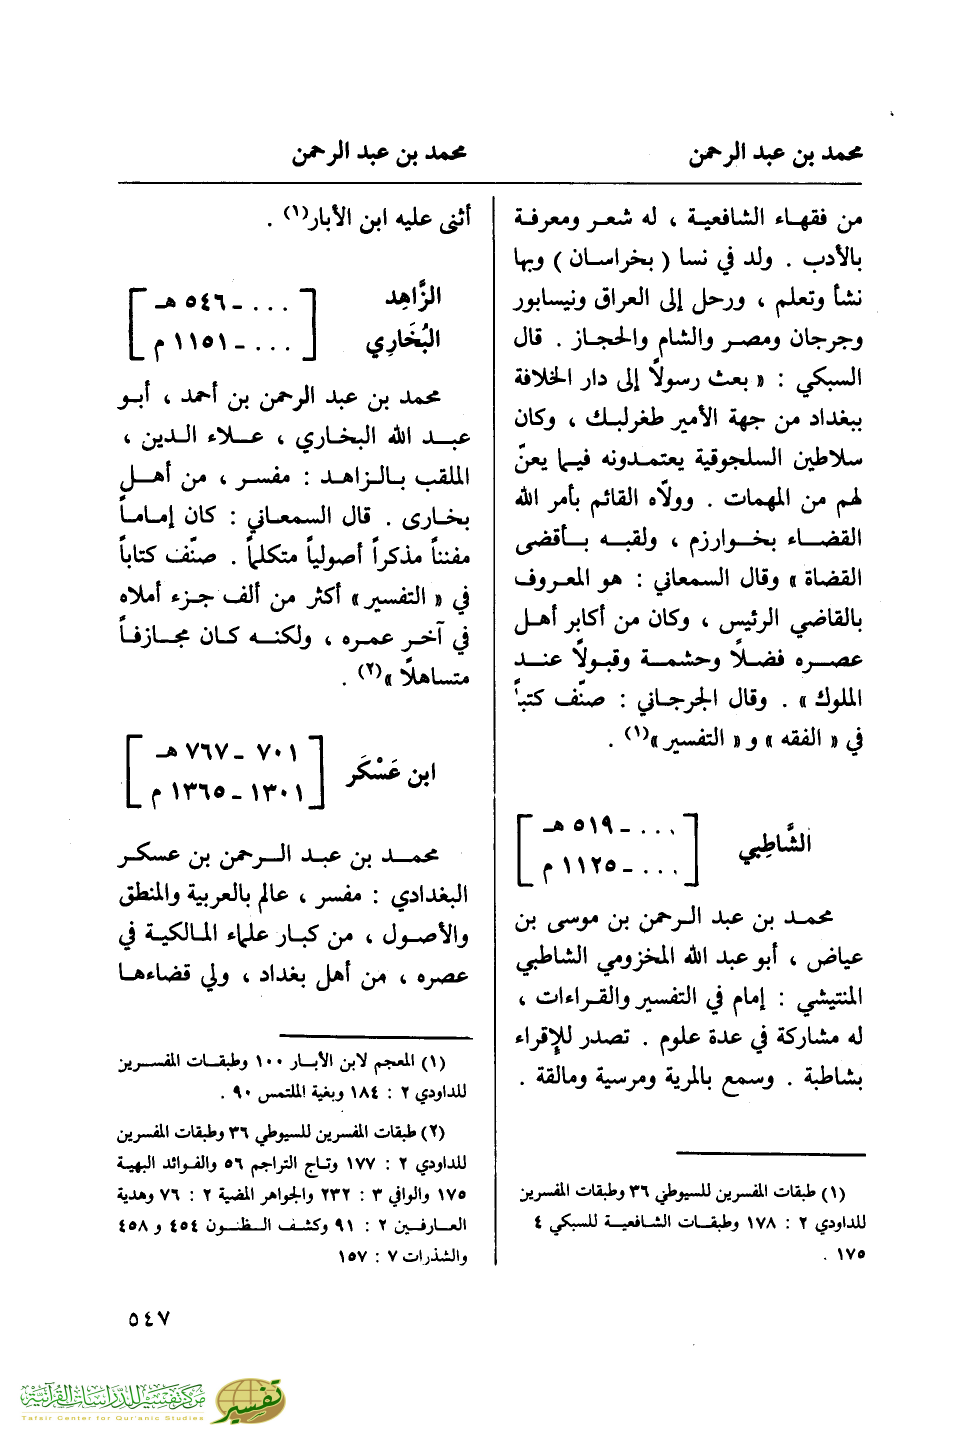 محمد بن عبد الرحمن
محمد بن عبد الرحمن
من فقهاء الشافعية ، له شعر ومعرفة
بالأدب . ولد في نسا ( بخراسان ) وبها
نشأ وتعلم ، ورحل إلى العراق ونيسابور
وجرجان ومصر والشام والحجاز . قال
السبكي : « بعث رسولاً إلى دار الخلافة
ببغداد من جهة الأمير طغرلبك ، وكان
سلاطين السلجوقية يعتمدونه فيما يعنّ
لهم من المهمات . وولّاه القائم بأمر الله
القضاء بخوارزم ، ولقبه بأقضى
القضاة » وقال السمعاني : هو المعروف
بالقاضي الرئيس ، وكان من أكابر أهل
عصره فضلاً وحشمة وقبولاً عند
الملوك » . وقال الجرجاني : صنّف كتباً
في « الفقه » و « التفسير »(١) .
الشَّاطِبي
[ ... ـ ٥١٩ هـ
... ـ ١١٢٥ م ]
محمد بن عبد الرحمن بن موسى بن
عياض ، أبو عبد الله المخزومي الشاطبي
المنتيشي : إمام في التفسير والقراءات ،
له مشاركة في عدة علوم . تصدر للإقراء
بشاطبة . وسمع بالمرية ومرسية ومالقة .
(١) طبقات المفسرين للسيوطي ٣٦ وطبقات المفسرين
للداودي ٢ : ١٧٨ وطبقات الشافعية للسبكي ٤
١٧٥ .
أثنى عليه ابن الأبار(١) .
الزَّاهِد
البُخَاري
[ ... ـ ٥٤٦ هـ
... ـ ١١٥١ م ]
محمد بن عبد الرحمن بن أحمد ، أبو
عبد الله البخاري ، علاء الدين ،
الملقب بالزاهد : مفسر ، من أهل
بخارى . قال السمعاني : كان إماماً
مفنناً مذكراً أصولياً متكلماً . صنّف كتاباً
في « التفسير » أكثر من ألف جزء أملاه
في آخر عمره ، ولكنه كان مجازفاً
متساهلاً »(٢) .
ابن عَسْكَر
[ ٧٠١ ـ ٧٦٧ هـ
١٣٠١ ـ ١٣٦٥ م ]
محمد بن عبد الرحمن بن عسكر
البغدادي : مفسر ، عالم بالعربية والمنطق
والأصول ، من كبار علماء المالكية في
عصره ، من أهل بغداد ، ولي قضاءها
(١) المعجم لابن الأبار ١٠٠ وطبقات المفسرين
للداودي ٢ : ١٨٤ وبغية الملتمس ٩٠ .
(٢) طبقات المفسرين للسيوطي ٣٦ وطبقات المفسرين
للداودي ٢ : ١٧٧ وتاج التراجم ٥٦ والفوائد البهية
١٧٥ والوافي ٣ : ٢٣٢ والجواهر المضية ٢ : ٧٦ وهدية
العارفين ٢ : ٩١ وكشف الظنون ٤٥٤ و ٤٥٨
والشذرات ٧ : ١٥٧
٥٤٧
مركز تفسير للدراسات القرآنية
Tafsir Center for Qur'anic Studies
تفسير